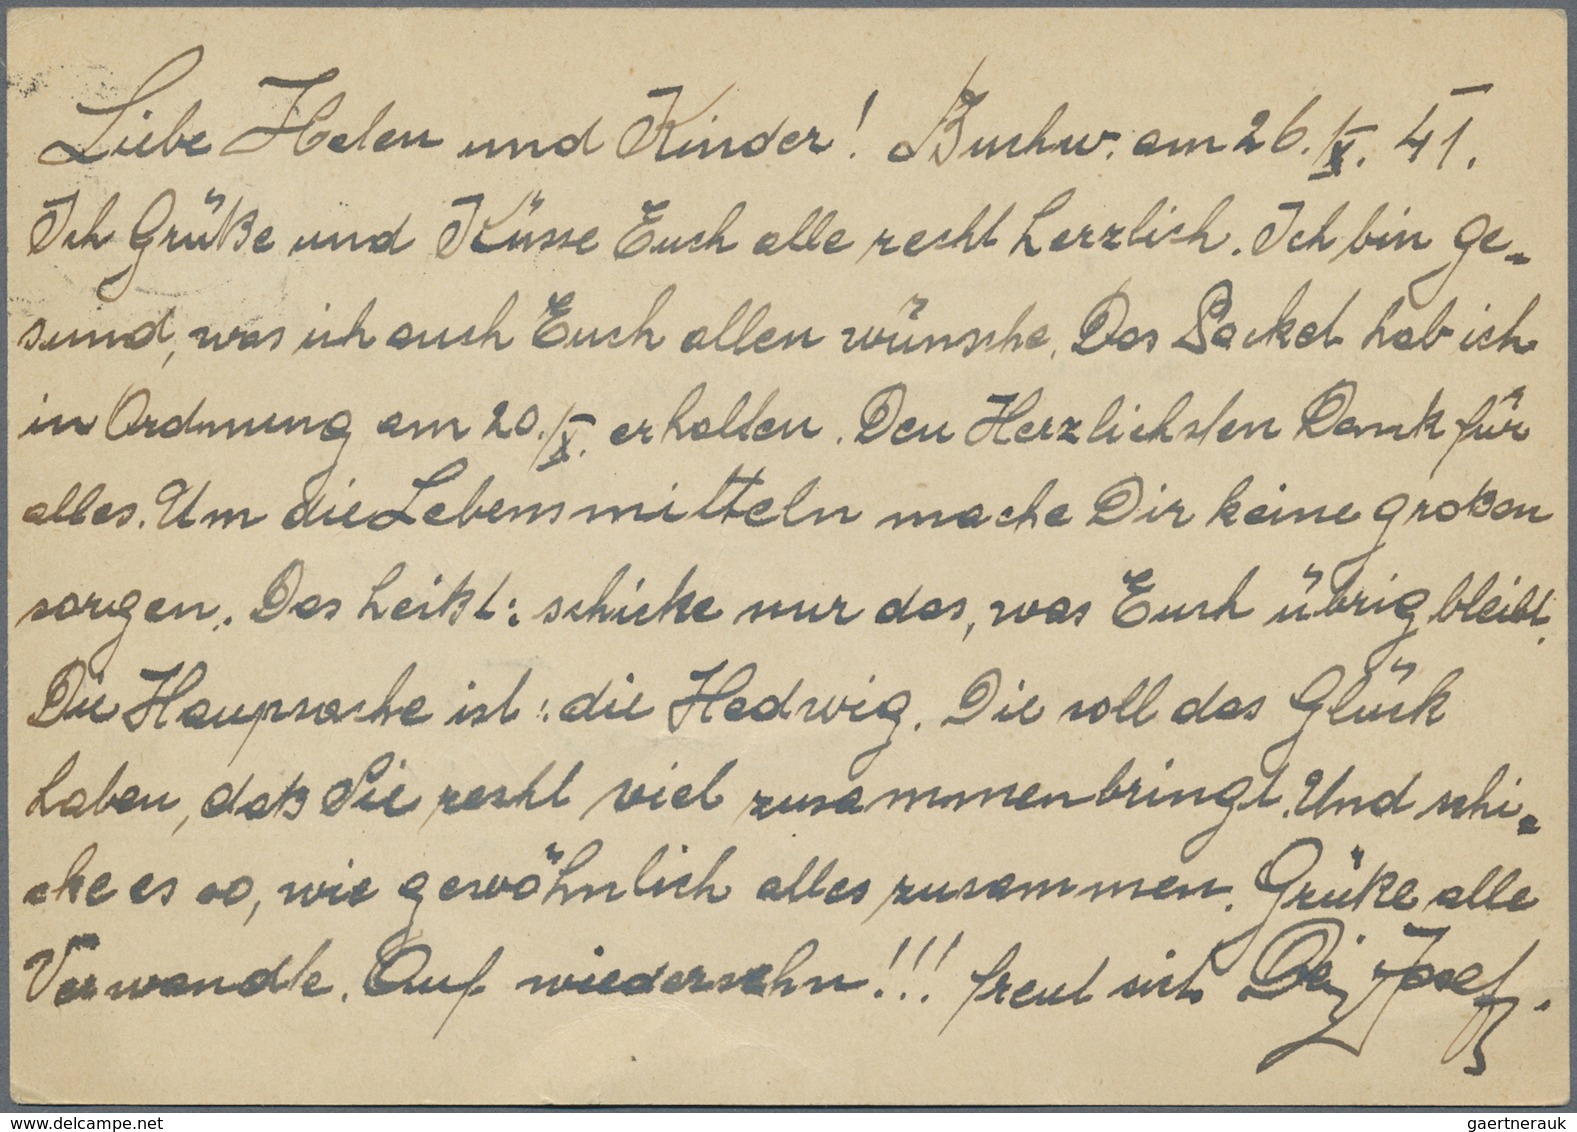 Liebe Helen und Kinder! Buchw. am 26./X. 41.
Ich Grüße und Küsse Euch alle recht herzlich. Ich bin ge-
sund, was ich auch Euch allen wünsche. Das Packet hab ich
in Ordnung am 20./X. erhalten. Den Herzlichsten Dank für
alles. Um die Lebensmitteln mache Dir keine großen
sorgen. Das heißt: schicke nur das, was Euch übrig bleibt.
Die Haupsache ist: die Hedwig. Die soll das Glück
haben, daß Sie recht viel zusammenbringt. Und schi-
cke es so, wie gewöhnlich alles zusammen. Grüße alle
Verwandte. Auf wiedersehn!!! freut sich Dein Josef.
gaertnerauk